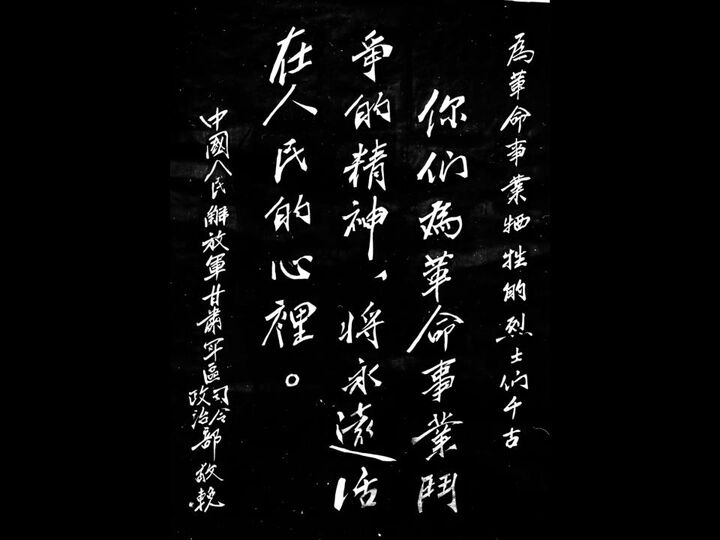 為革命事業牺牲的烈士们千古
你们為革命事業鬥
争的精神、将永遠活
在人民的心裡。
中國人民解放軍甘肅军區司令
政治部敬輓